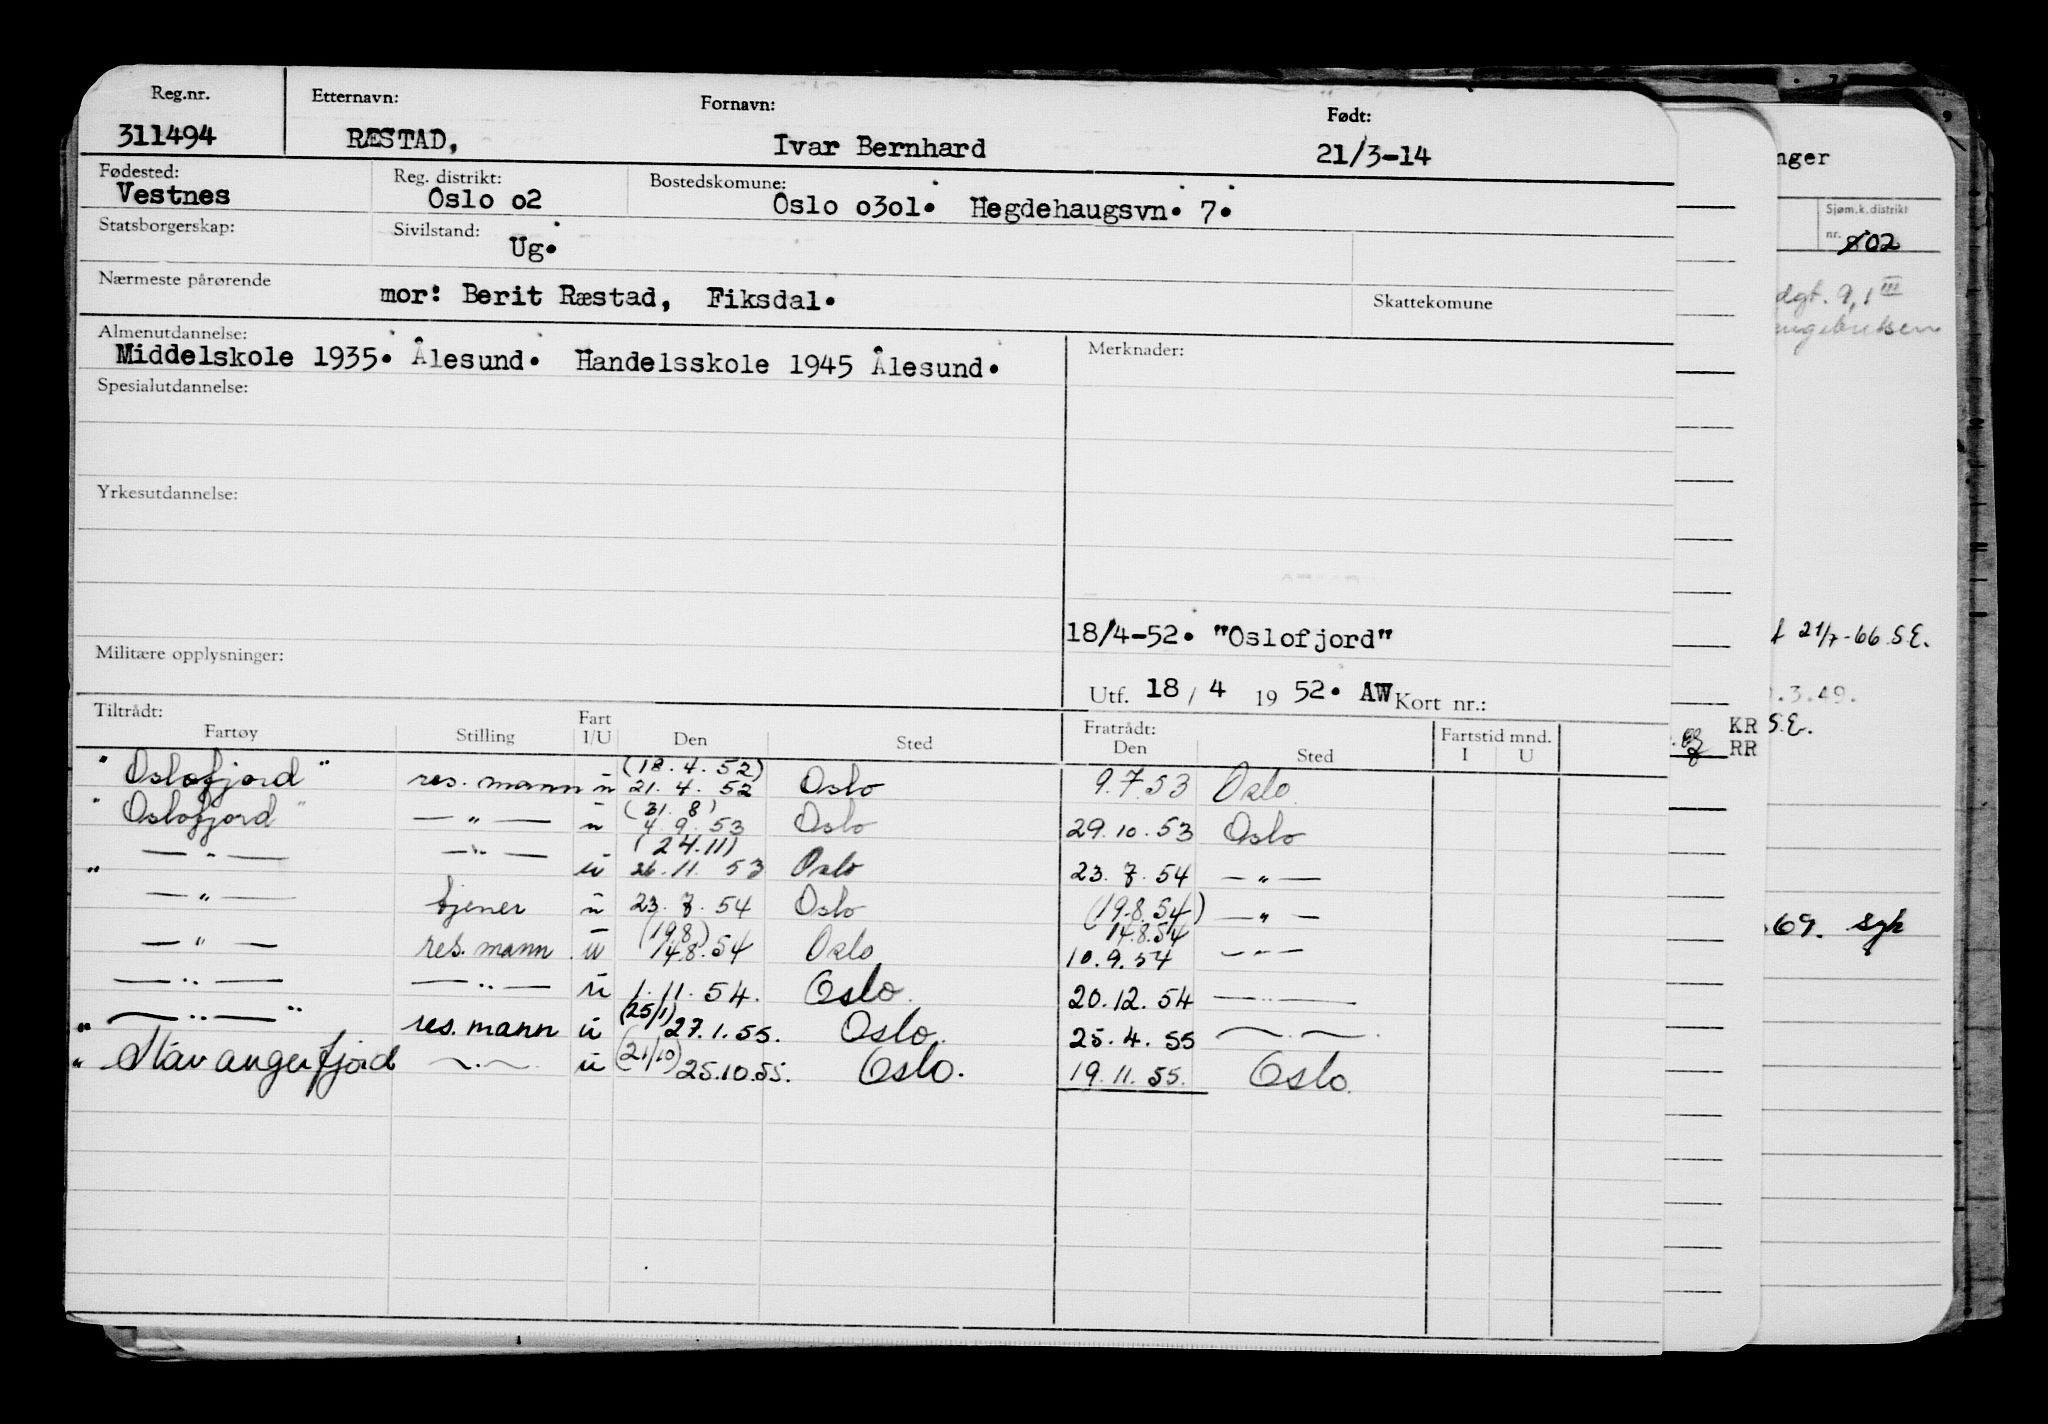 Reg.nr. Etternavn: Fornavn: Født:
311494 RÆSTAD, Ivar Bernhard 21/3-14
Fødested: Reg. distrikt: Bostedskomune:
Vestnes Oslo o2 Oslo o3o1. Hegdehaugsvn. 7.
Statsborgerskap: Sivilstand:
Ug.
Nærmeste pårørende mor: Berit Ræstad, Fiksdal. Skattekomune
Almenutdannelse: Merknader:
Middelskole 1935. Ålesund. Handelsskole 1945 Ålesund.
Spesialutdannelse:
Yrkesutdannelse:
18/4-52. "Oslofjord"
Militære opplysninger:
Utf. 18 / 4 19 52. AW Kort nr.:
Tiltrådt: Fart Fratrådt: Fartstid mnd.
Fartøy Stilling I/U Den Sted Den Sted I U
(18.4.52)
"Oslofjord" res. mann u 21.4.52 Oslo 9.7.53 Oslo
(31.8)
"Oslofjord" —"— u 4.9.53 Oslo 29.10.53 Oslo
(24.11)
—"— —"— u 26.11.53 Oslo 23.7.54 —"—
—"— tjener u 23.7.54 Oslo (19.8.54) —"—
(19.8) 14.8.54
—"— res. mann u 14.8.54 Oslo 10.9.54 —"—
—"— —"— u 1.11.54. Oslo. 20.12.54 —"—
(25/1)
"—"—" res. mann u 27.1.55. Oslo. 25.4.55 —"—
"Stavangerfjord —"— u (21/10) 25.10.55. Oslo. 19.11.55. Oslo.
nger
Sjøm.k.distrikt
nr. 02
21/7-66 S.E.
.3.49.
KR S.E.
RR
69.